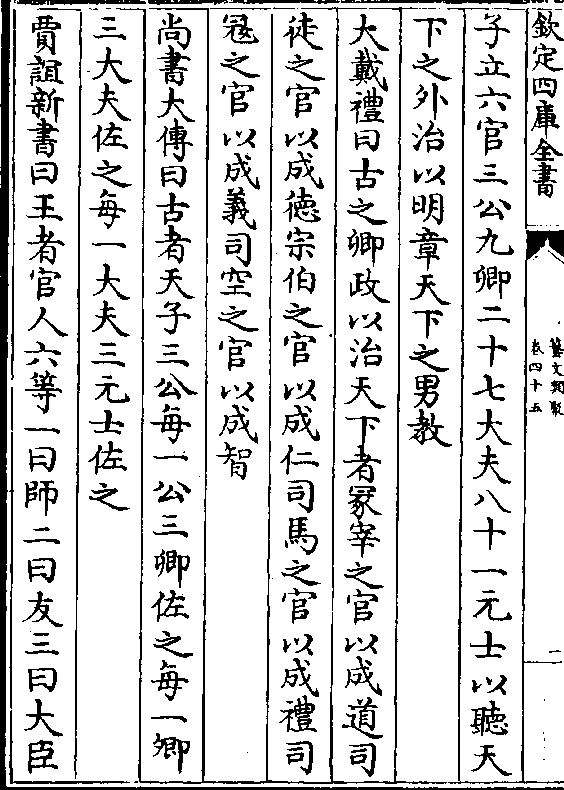 欽定四庫全書
藝文類聚
卷四十五
二
子立六官三公九卿二十七大夫八十一元士以聽天
下之外治以明章天下之男教
大戴禮曰古之卿政以治天下者冢宰之官以成道司
徒之官以成德宗伯之官以成仁司馬之官以成禮司
冦之官以成義司空之官以成智
尚書大傳曰古者天子三公每一公三卿佐之每一卿
三大夫佐之每一大夫三元士佐之
賈誼新書曰王者官人六等一曰師二曰友三曰大臣